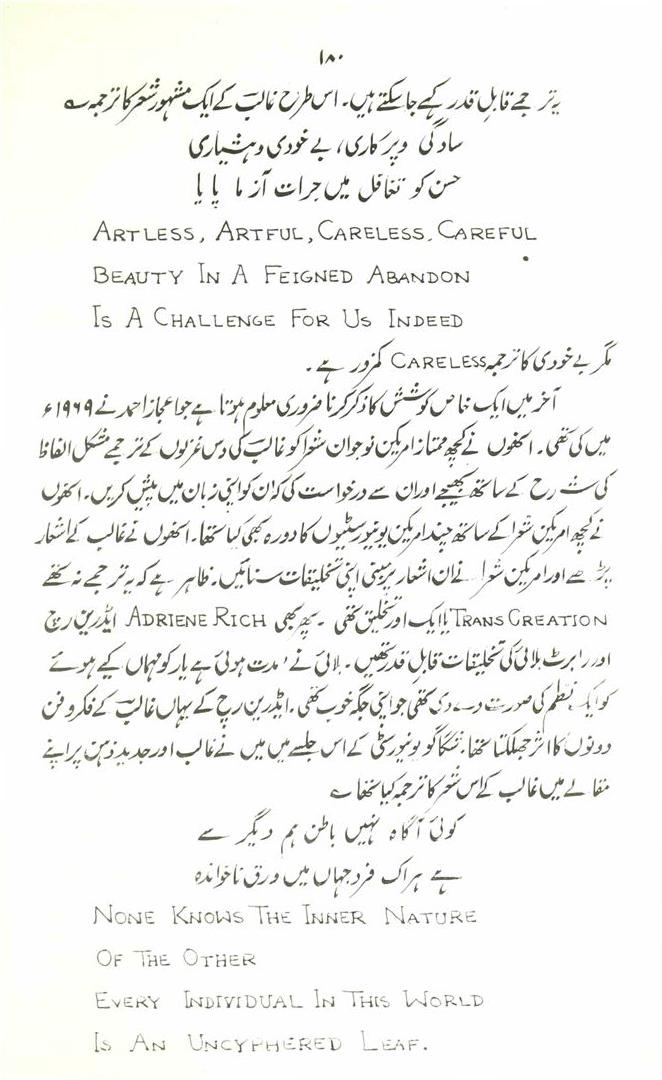 ۱۸۰
یہ ترجمے قابلِ قدر کہے جاسکتے ہیں۔ اس طرح غالبؔ کے ایک مشہور شعر کا ترجمہ ؎
سادگی و پرکاری، بے خودی و ہشیاری
حسن کو تغافل میں جرات آزما پایا
ARTLESS, ARTFUL, CARELESS, CAREFUL
BEAUTY IN A FEIGNED ABANDON
IS A CHALLENGE FOR US INDEED
مگر بے خودی کا ترجمہ CARELESS کمزور ہے۔
آخر میں ایک خاص کوشش کا ذکر کرنا ضروری معلوم ہوتا ہے جو اعجاز احمد نے ۱۹۶۹ء
میں کی تھی۔ انھوں نے کچھ ممتاز امریکن نوجوان شعرا کو غالبؔ کی دس غزلوں کے ترجمے مشکل الفاظ
کی شرح کے ساتھ بھیجے اور ان سے درخواست کی کہ ان کو اپنی زبان میں پیش کریں۔ انھوں
نے کچھ امریکن شعرا کے ساتھ چند امریکن یونیورسٹیوں کا دورہ بھی کیا تھا۔ انھوں نے غالب کے اشعار
پڑھے اور امریکن شعرا نے ان اشعار پر مبنی اپنی تخلیقات سنائیں۔ ظاہر ہے کہ یہ ترجمے نہ تھے
TRANS CREATION یا ایک اور تخلیق تھی۔ پھر بھی ADRIENE RICH ایڈرین رچ
اور رابرٹ بلائی کی تخلیقات قابلِ قدر تھیں۔ بلائی نے ’مدت ہوئی ہے یار کو مہماں کیے ہوئے
کو ایک نظم کی صورت دے دی تھی جو اپنی جگہ خوب تھی۔ ایڈرین رچ کے یہاں غالبؔ کے فکر و فن
دونوں کا اثر جھلکتا تھا۔ شکاگو یونیورسٹی کے اس جلسے میں میں نے غالب اور جدید ذہن پر اپنے
مقالے میں غالب کے اس شعر کا ترجمہ کیا تھا ؎
کوئی آگاہ نہیں باطن ہم دیگر سے
ہے ہر اک فرد جہاں میں ورق ناخواندہ
NONE KNOWS THE INNER NATURE
OF THE OTHER
EVERY INDIVIDUAL IN THIS WORLD
IS AN UNCYPHERED LEAF.